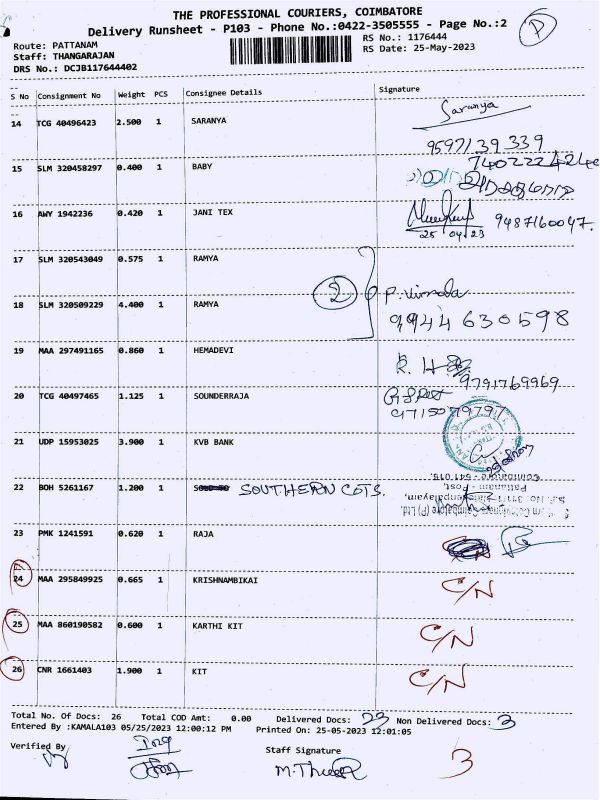 THE PROFESSIONAL COURIERS, COIMBATORE
Delivery Runsheet - P103 - Phone No.:0422-3505555 - Page No.:2
P
Route: PATTANAM RS No.: 1176444
Staff: THANGARAJAN RS Date: 25-May-2023
DRS No.: DCJB117644402
S No Consignment No Weight PCS Consignee Details Signature
14 TCG 40496423 2.500 1 SARANYA Saranya
9597139339
15 SLM 320458297 0.400 1 BABY 7402222424
16 AWY 1942236 0.420 1 JANI TEX 9487160047.
25 04 23
17 SLM 320543049 0.575 1 RAMYA
2 P. Vimala
18 SLM 320509229 4.400 1 RAMYA 9944630598
19 MAA 297491165 0.860 1 HEMADEVI
9791769969
20 TCG 40497465 1.125 1 SOUNDERRAJA
9715079797
21 UDP 15953025 3.900 1 KVB BANK
22 BOH 5261167 1.200 1 SOUTHERN COTS.
Coimbatore - 641 016.
23 PMK 1241591 0.620 1 RAJA
24 MAA 295849925 0.665 1 KRISHNAMBIKAI C/N
25 MAA 860190582 0.600 1 KARTHI KIT C/N
26 CNR 1661403 1.900 1 KIT C/N
Total No. Of Docs: 26 Total COD Amt: 0.00 Delivered Docs: 23 Non Delivered Docs: 3
Entered By :KAMALA103 05/25/2023 12:00:12 PM Printed On: 25-05-2023 12:01:05
Verified By Staff Signature 3